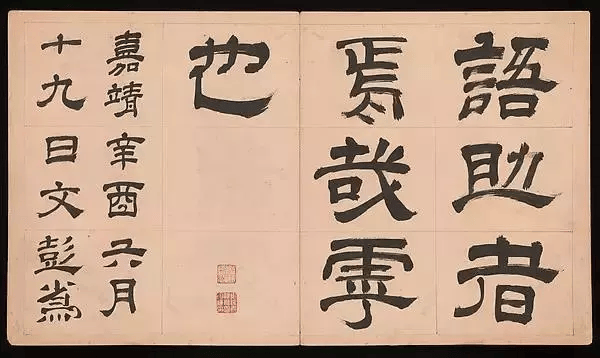 語助者
焉哉虖
也
嘉靖辛酉六月
十九日文彭